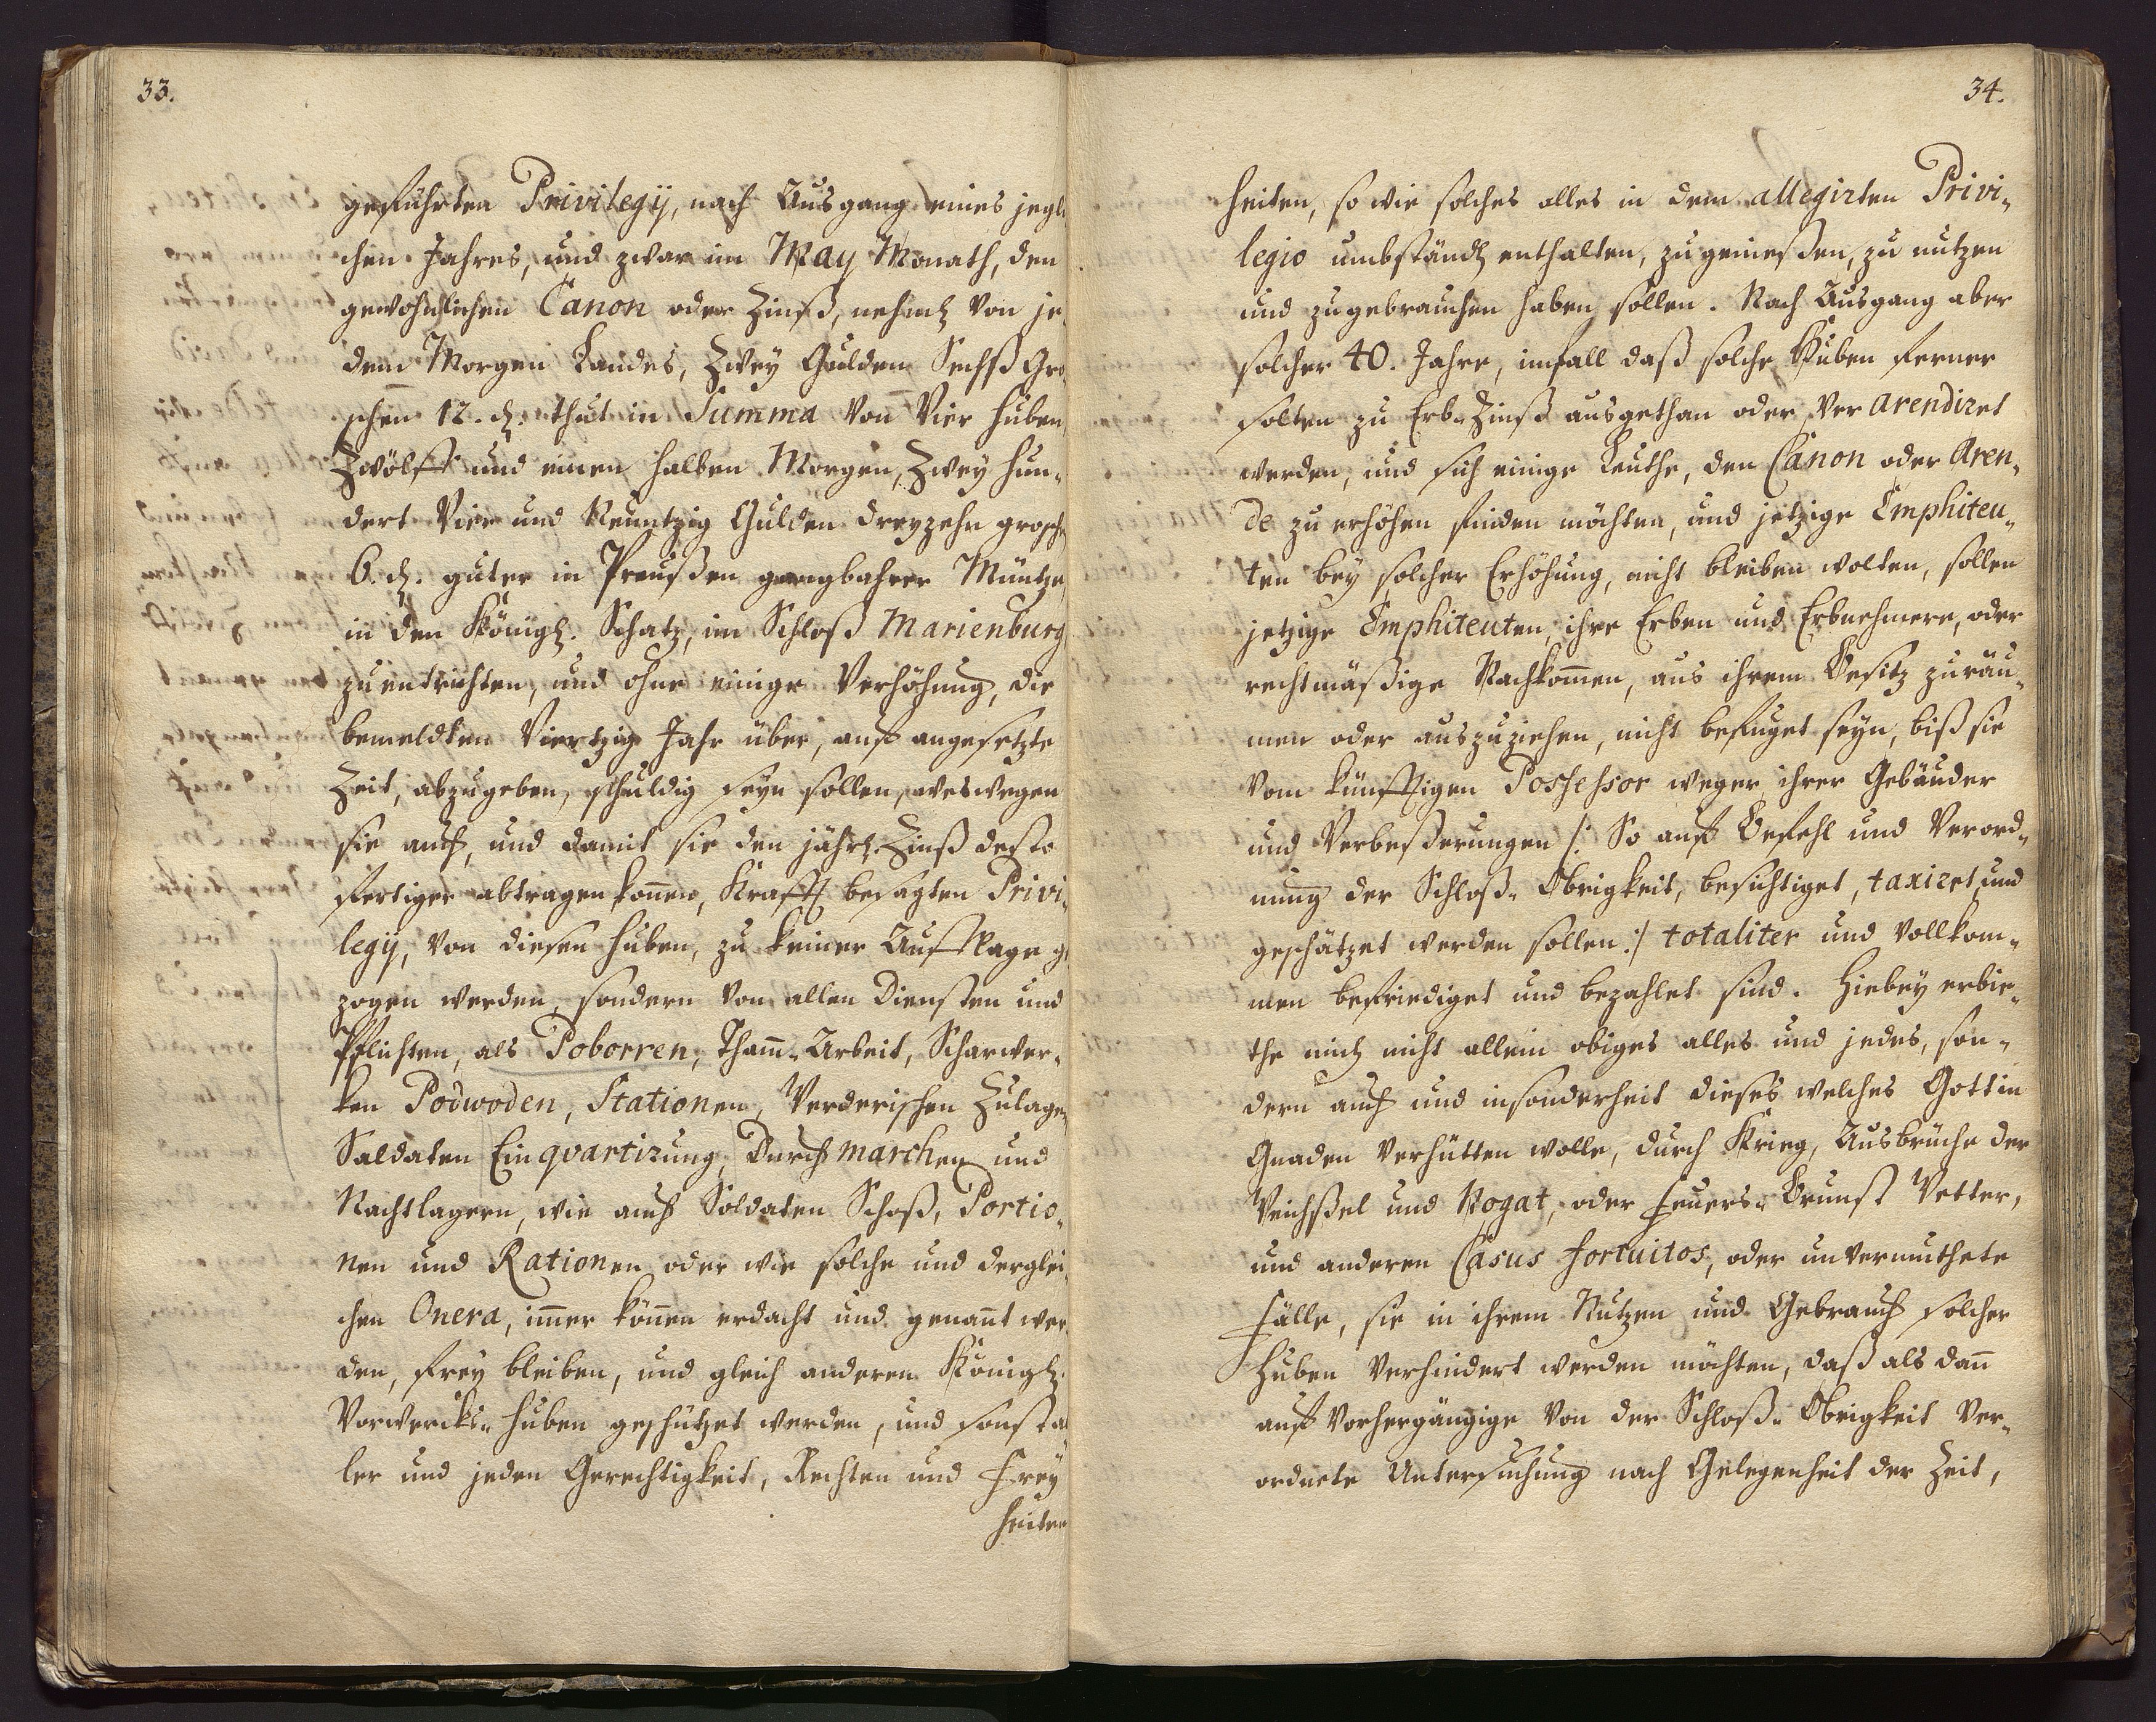 33.
geführten Privilegij, nach Ausgang eines jegli
chen Jahres, und zwar im May Monath, den
gewohnlichen Canon oder Zinß, nehml von je
dem Morgen Landes, Zwey Gulden Sechß Gro
schen 12. d. thut in Summa von Vier Huben,
Zwölff und einen halben Morgen, Zwey hun„
dert Vier und Neuntzig Gulden dreyzehn grosch
6. d. guter in Preußen gangbahrer Müntze,
in den Königl. Schatz, im Schloß Marienburg
zuentrichten, und ohne einige Verhöhung, die
bemeldten Viertzig Jahr über, auf angesetzte
Zeit, abzugeben, schuldig seyn sollen, weswegen
sie auch, und damit sie den jährl. Zinß desto
fertiger abtragen konnen, Krafft besagten Privi„
legij, von diesen Huben, zu keiner Aufflage ge
zogen werden, sondern von allen Diensten und
Pflichten, als Poborren, Tham„Arbeit, Scharwer„
ken Podwoden, Stationen, Werderischen Zulagen
Saldaten Einqvartirung, Durch marchen und
Nachtlagern, wie auch Soldaten Schoß, Portio„
nen und Rationen oder wie solche und derglei
chen Onera, imer können erdacht und genant wer
den, frey bleiben, und gleich anderen Königl.
Vorwercks„Huben geschützet werden, und sonst al
ler und jeden Gerechtigkeit, Rechten und Frey
heiten
34.
heiten, so wie solches alles in dem allegirten Privi„
legio umbständl enthalten, zugenießen, zu nutzen
und zugebrauchen haben sollen. Nach Ausgang aber
solcher 40. Jahre, imfall daß solche Huben ferner
solten zu Erb„Zinß ausgethan oder Ver arendiret
werden, und sich einige Leuthe, den Canon oder Aren„
de zu erhöhen finden möchten, und jetzige Emphiteu„
ten bey solcher Erhöhung, nicht bleiben wolten, sollen
jetzige Emphiteuten, ihre Erben und Erbnehmere, oder
rechtmäßige Nachkomen, aus ihrem Besitz zuräu„
men oder auszuziehen, nicht befuget seyn, biß sie
vom künfftigen Possessor wegen ihrer Gebäuder
und Verbeßerungen /: So auf Befehl und Verord„
nung der Schloß„Obrigkeit, besichtiget, taxiret, und
geschätzet werden sollen :/ totaliter und vollkom„
men befriediget und bezahlet sind. Hiebey erbie„
the mich nicht allein obiges alles und jedes, son„
dern auch und insonderheit dieses welches Gott in
Gnaden verhütten wolle, durch Krieg, Ausbrüche der
Weichßel und Nogat, oder Feuers„Brunst Wetter,
und anderen Casus fortuitos, oder unvermuthete
Fälle, sie in ihrem Nutzen und Gebrauch solcher
Huben verhindert werden möchten, daß als dan
auf vorhergängige von der Schloß„Obrigkeit ver„
ordnete Untersuchung nach Gelegenheit der Zeit,